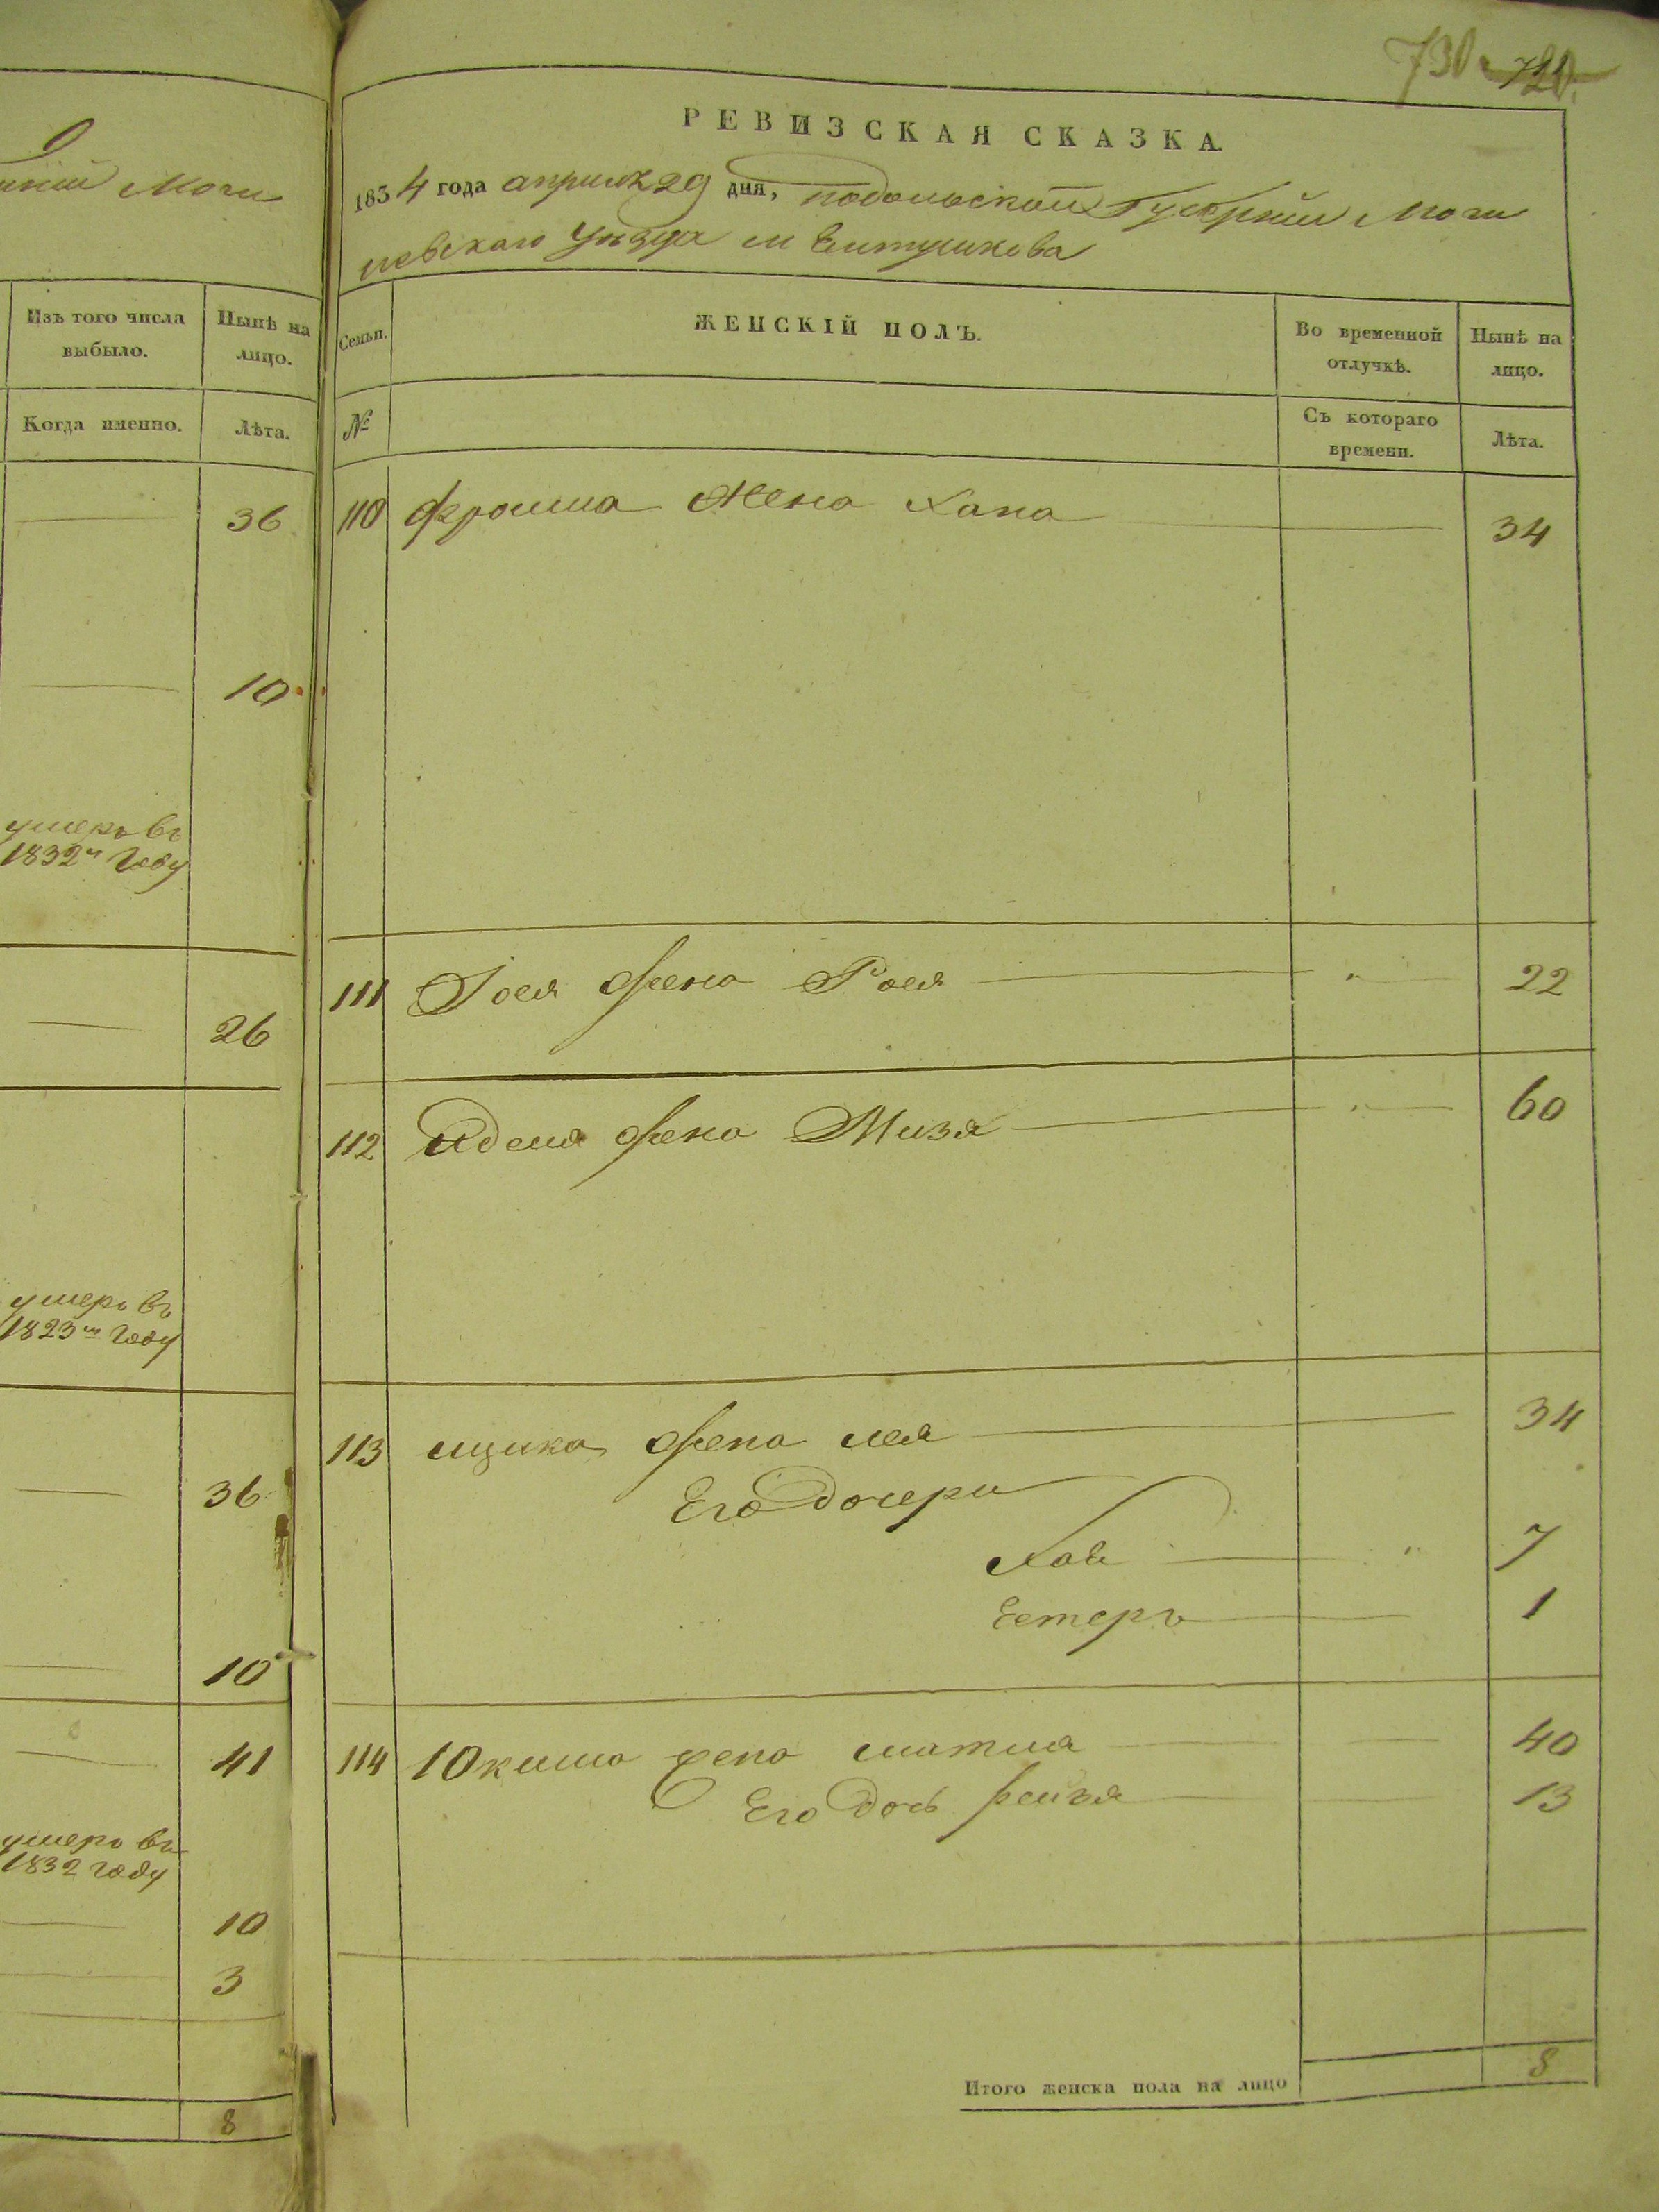 Мочи
Изъ того числа выбыло.
Нынѣ на лицо.
Когда именно.
Лѣта.
36
10
умеръ въ
1832м Году
26
умеръ въ
1823м Году
36
10
41
умеръ въ
1832 году
10
3
8
730
720.
РЕВИЗСКАЯ СКАЗКА.
1834 года апреля 29 дня, подольской Губернии Моги
левскаго уѣзда м
Семьи.
ЖЕНСКІЙ ПОЛЪ.
Во временной отлучкѣ.
Нынѣ на лицо.
№
Съ котораго времени.
Лѣта.
110 Фроима Жена Хана 34
111 жена Рося 22
112 жена Мизя 60
113 ицика жена лея 34
Его дочери
Хая 7
Естеръ 1
114 жена 40
Его дочь 13
Итого женска пола на лицо 8